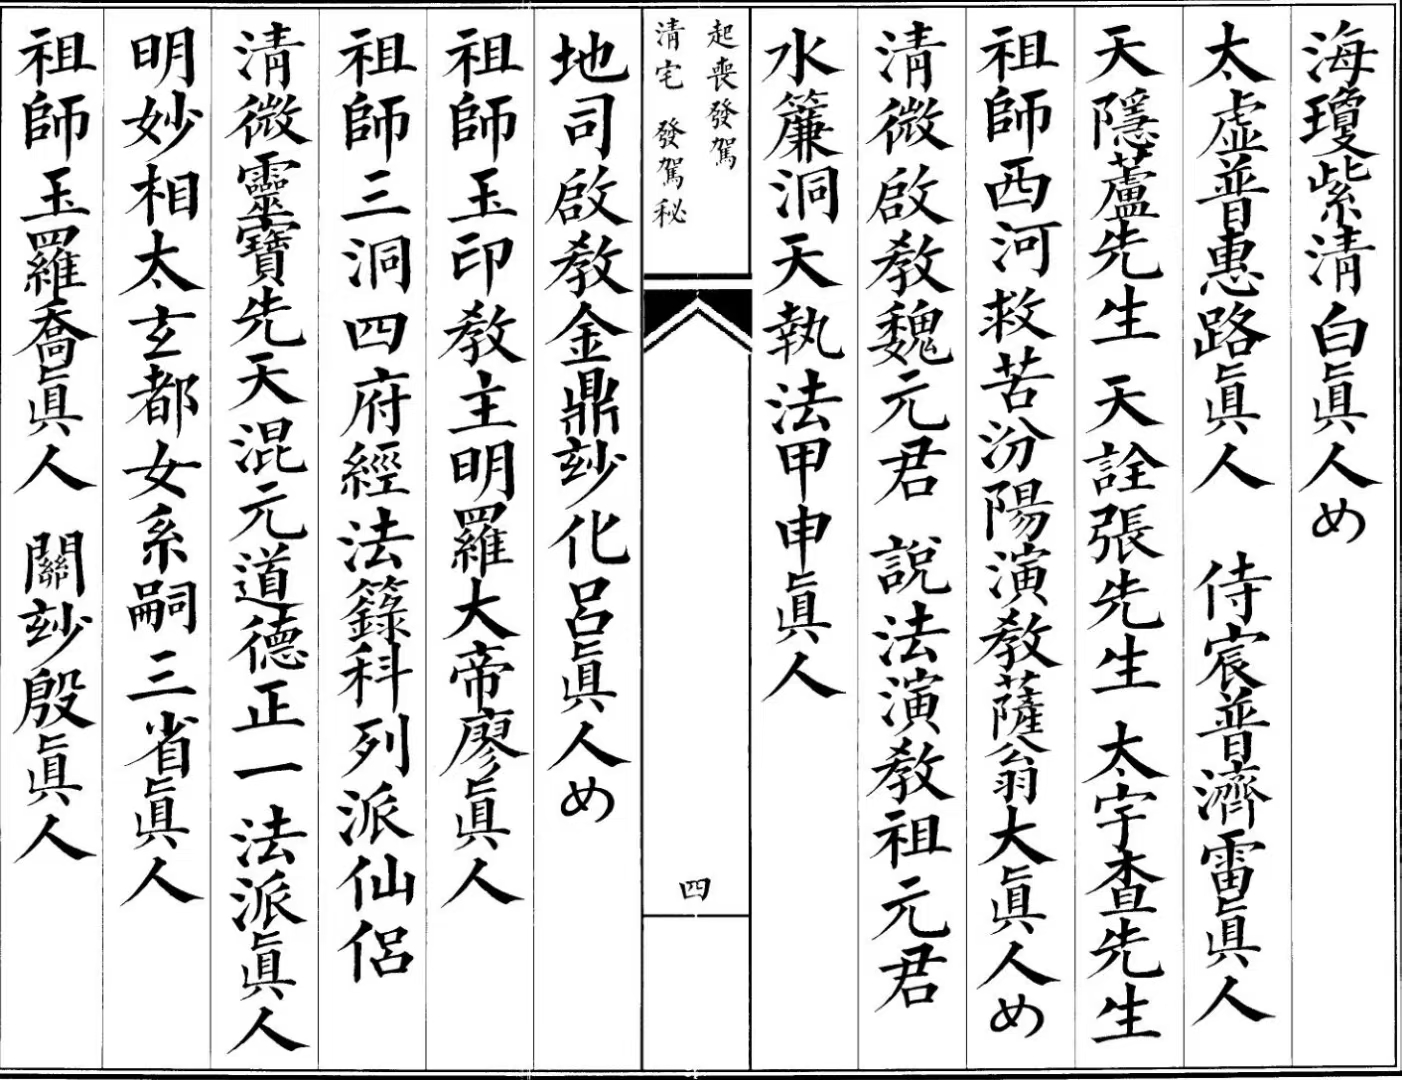 海瓊紫清白眞人め
太虛普惠路眞人　侍宸普濟雷眞人
天隱蘆先生　天詮張先生　太宇查先生
祖師西河救苦汾陽演教薩翁大眞人め
清微啟教魏元君　說法演教祖元君
水簾洞天執法甲申眞人
起喪發駕
清宅　發駕秘
四
地司啟教金鼎玅化呂眞人め
祖師玉印教主明羅大帝廖眞人
祖師三洞四府經法籙科列派仙侶
清微靈寶先天混元道德正一法派眞人
明妙相太玄都女系嗣三省眞人
祖師玉羅喬眞人　關玅殷眞人